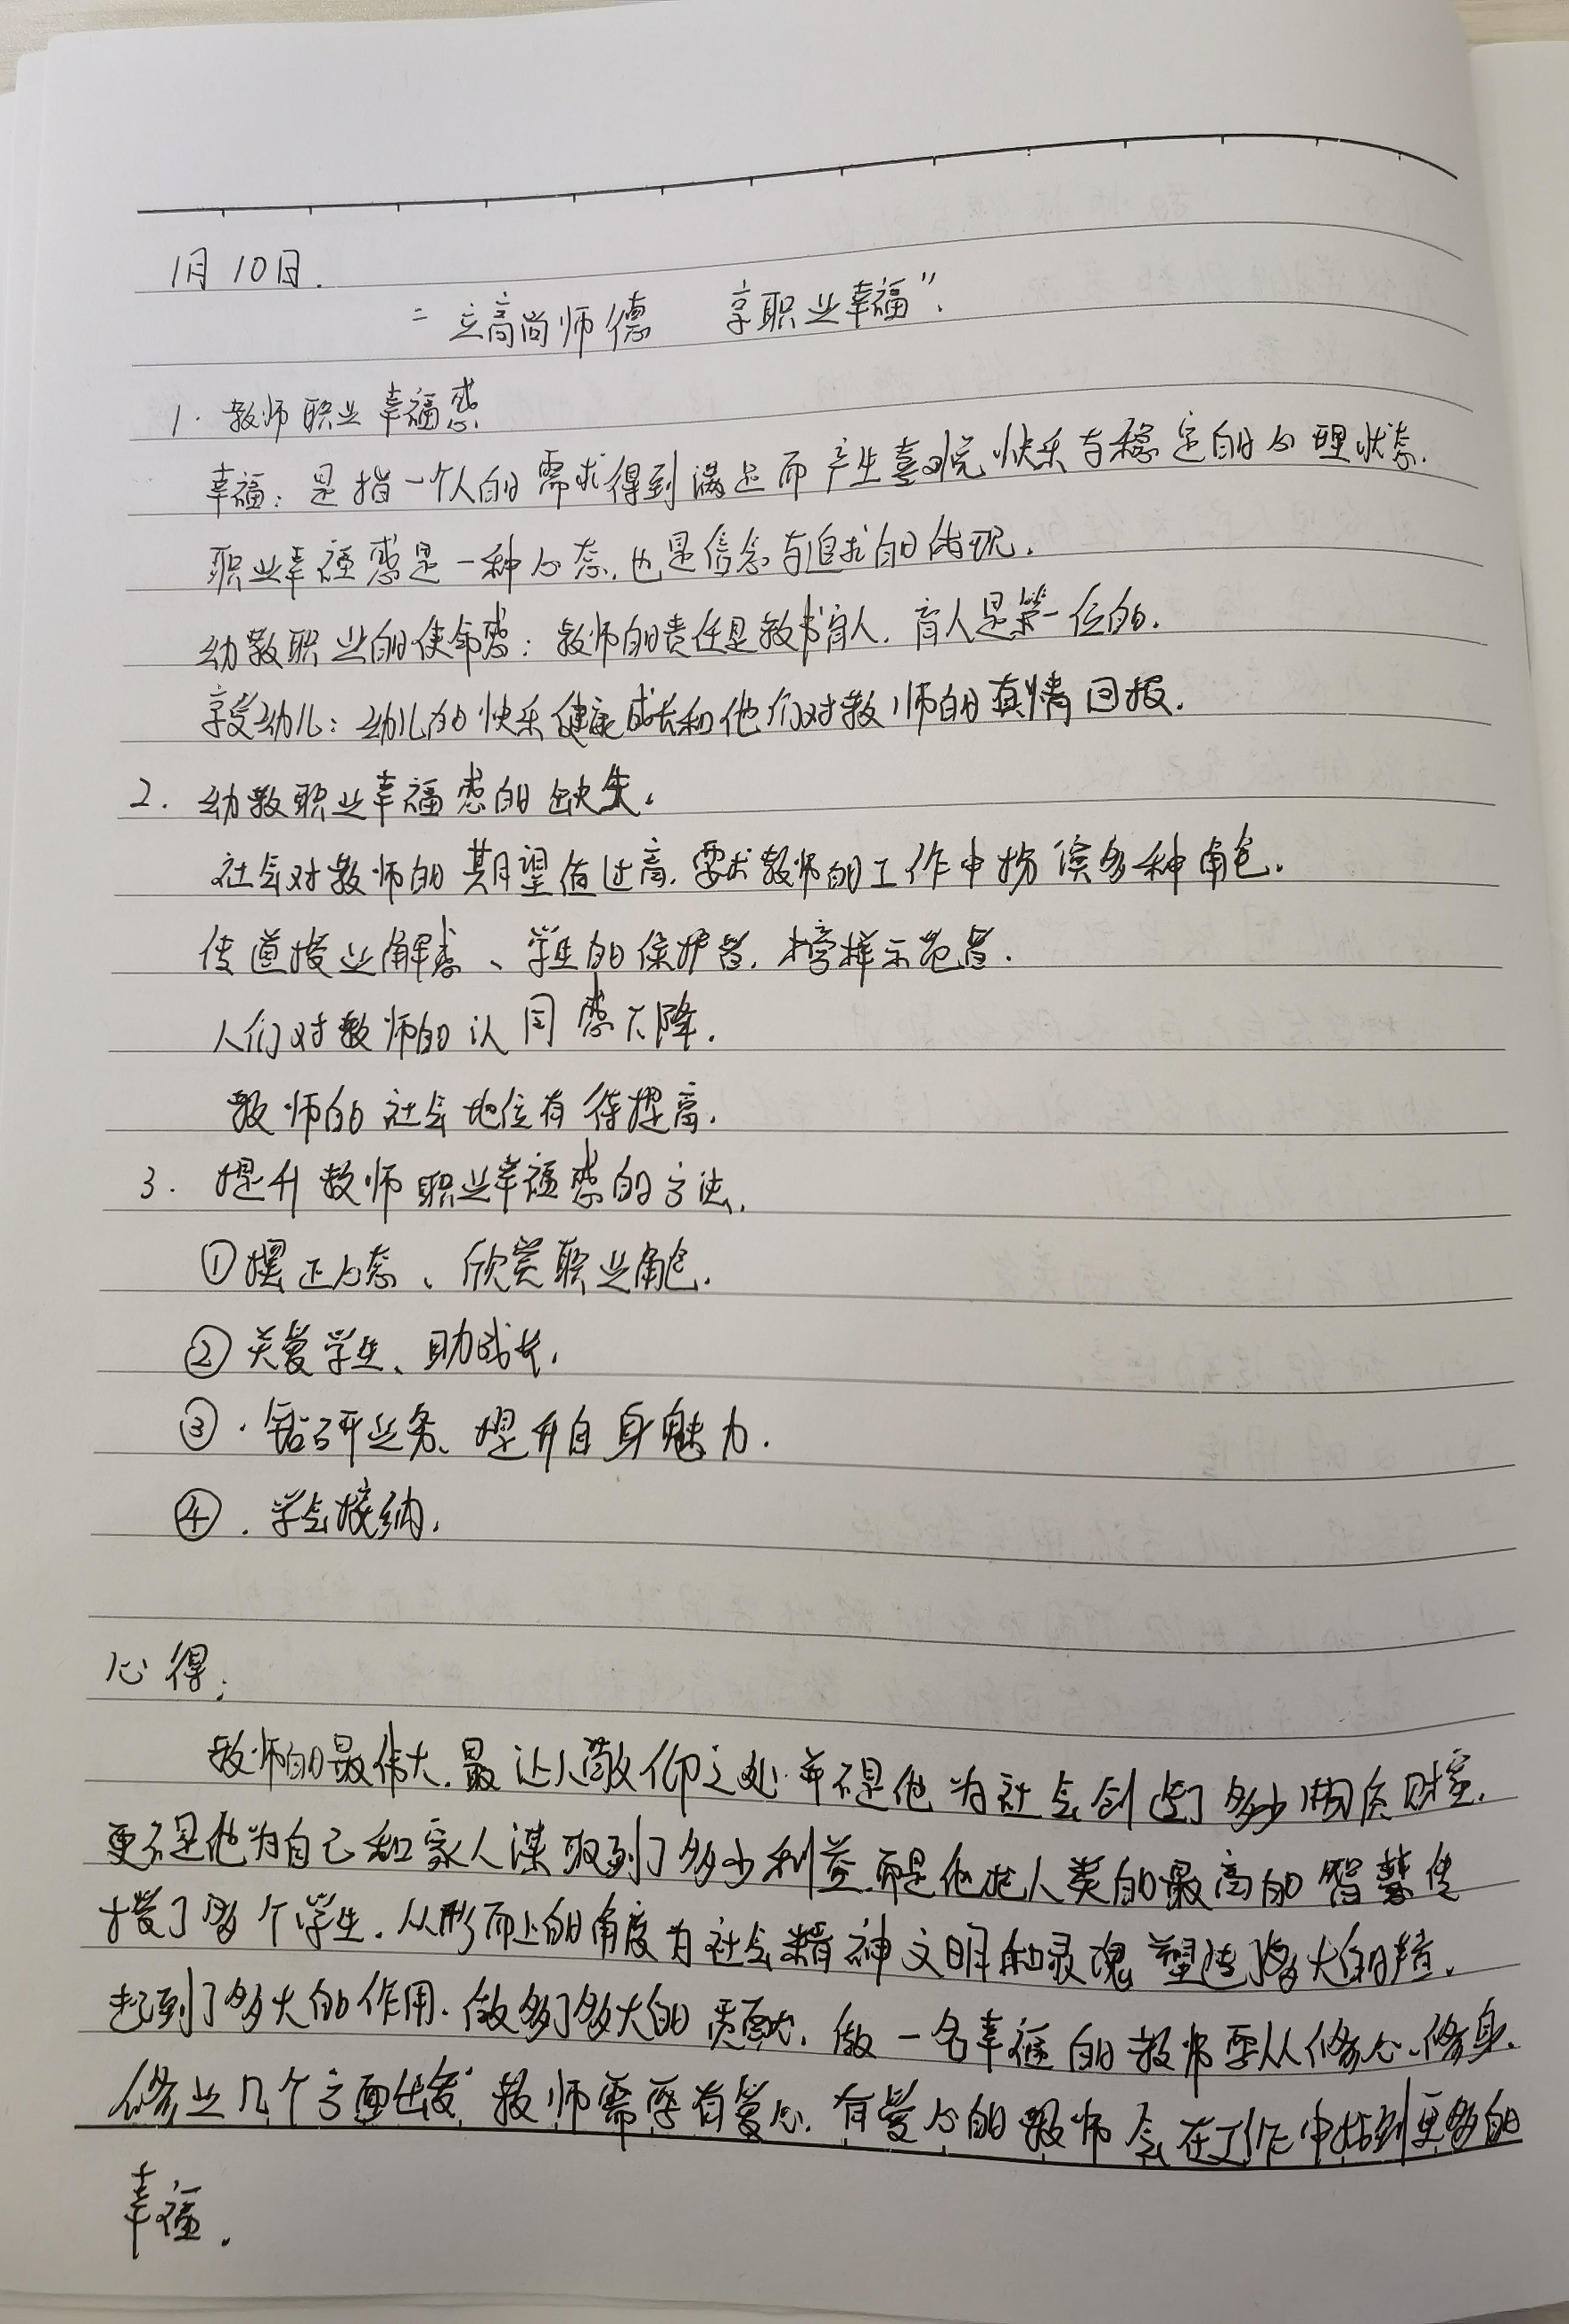 1月10日.
“立高尚师德 享职业幸福”.
1. 教师职业幸福感
幸福：是指一个人的需求得到满足而产生喜悦快乐与稳定的心理状态.
职业幸福感是一种心态,也是信念与追求的体现.
幼教职业的使命感：教师的责任是教书育人. 育人是第一位的.
享受幼儿：幼儿的快乐健康成长和他们对教师的真情回报.
2. 幼教职业幸福感的缺失.
社会对教师的期望值过高. 要求教师的工作中扮演多种角色.
传道授业解惑、学生的保护者. 榜样示范者.
人们对教师的认同感下降.
教师的社会地位有待提高.
3. 提升教师职业幸福感的方法.
①摆正心态、欣赏职业角色.
②关爱学生、助成长.
③.钻研业务、提升自身魅力.
④.学会接纳.
心得：
教师的最伟大.最让人敬仰之处.并不是他为社会创造了多少物质财富.
更不是他为自己和家人谋取到了多少利益.而是他把人类的最高的智慧传
授了多个学生. 从形而上的角度为社会精神文明和灵魂塑造了多大的
起到了多大的作用. 做多了多大的贡献. 做一名幸福的教师要从修心、修身.
修业几个方面出发. 教师需要有爱心. 有爱心的教师会在工作中找到更多的
幸福.